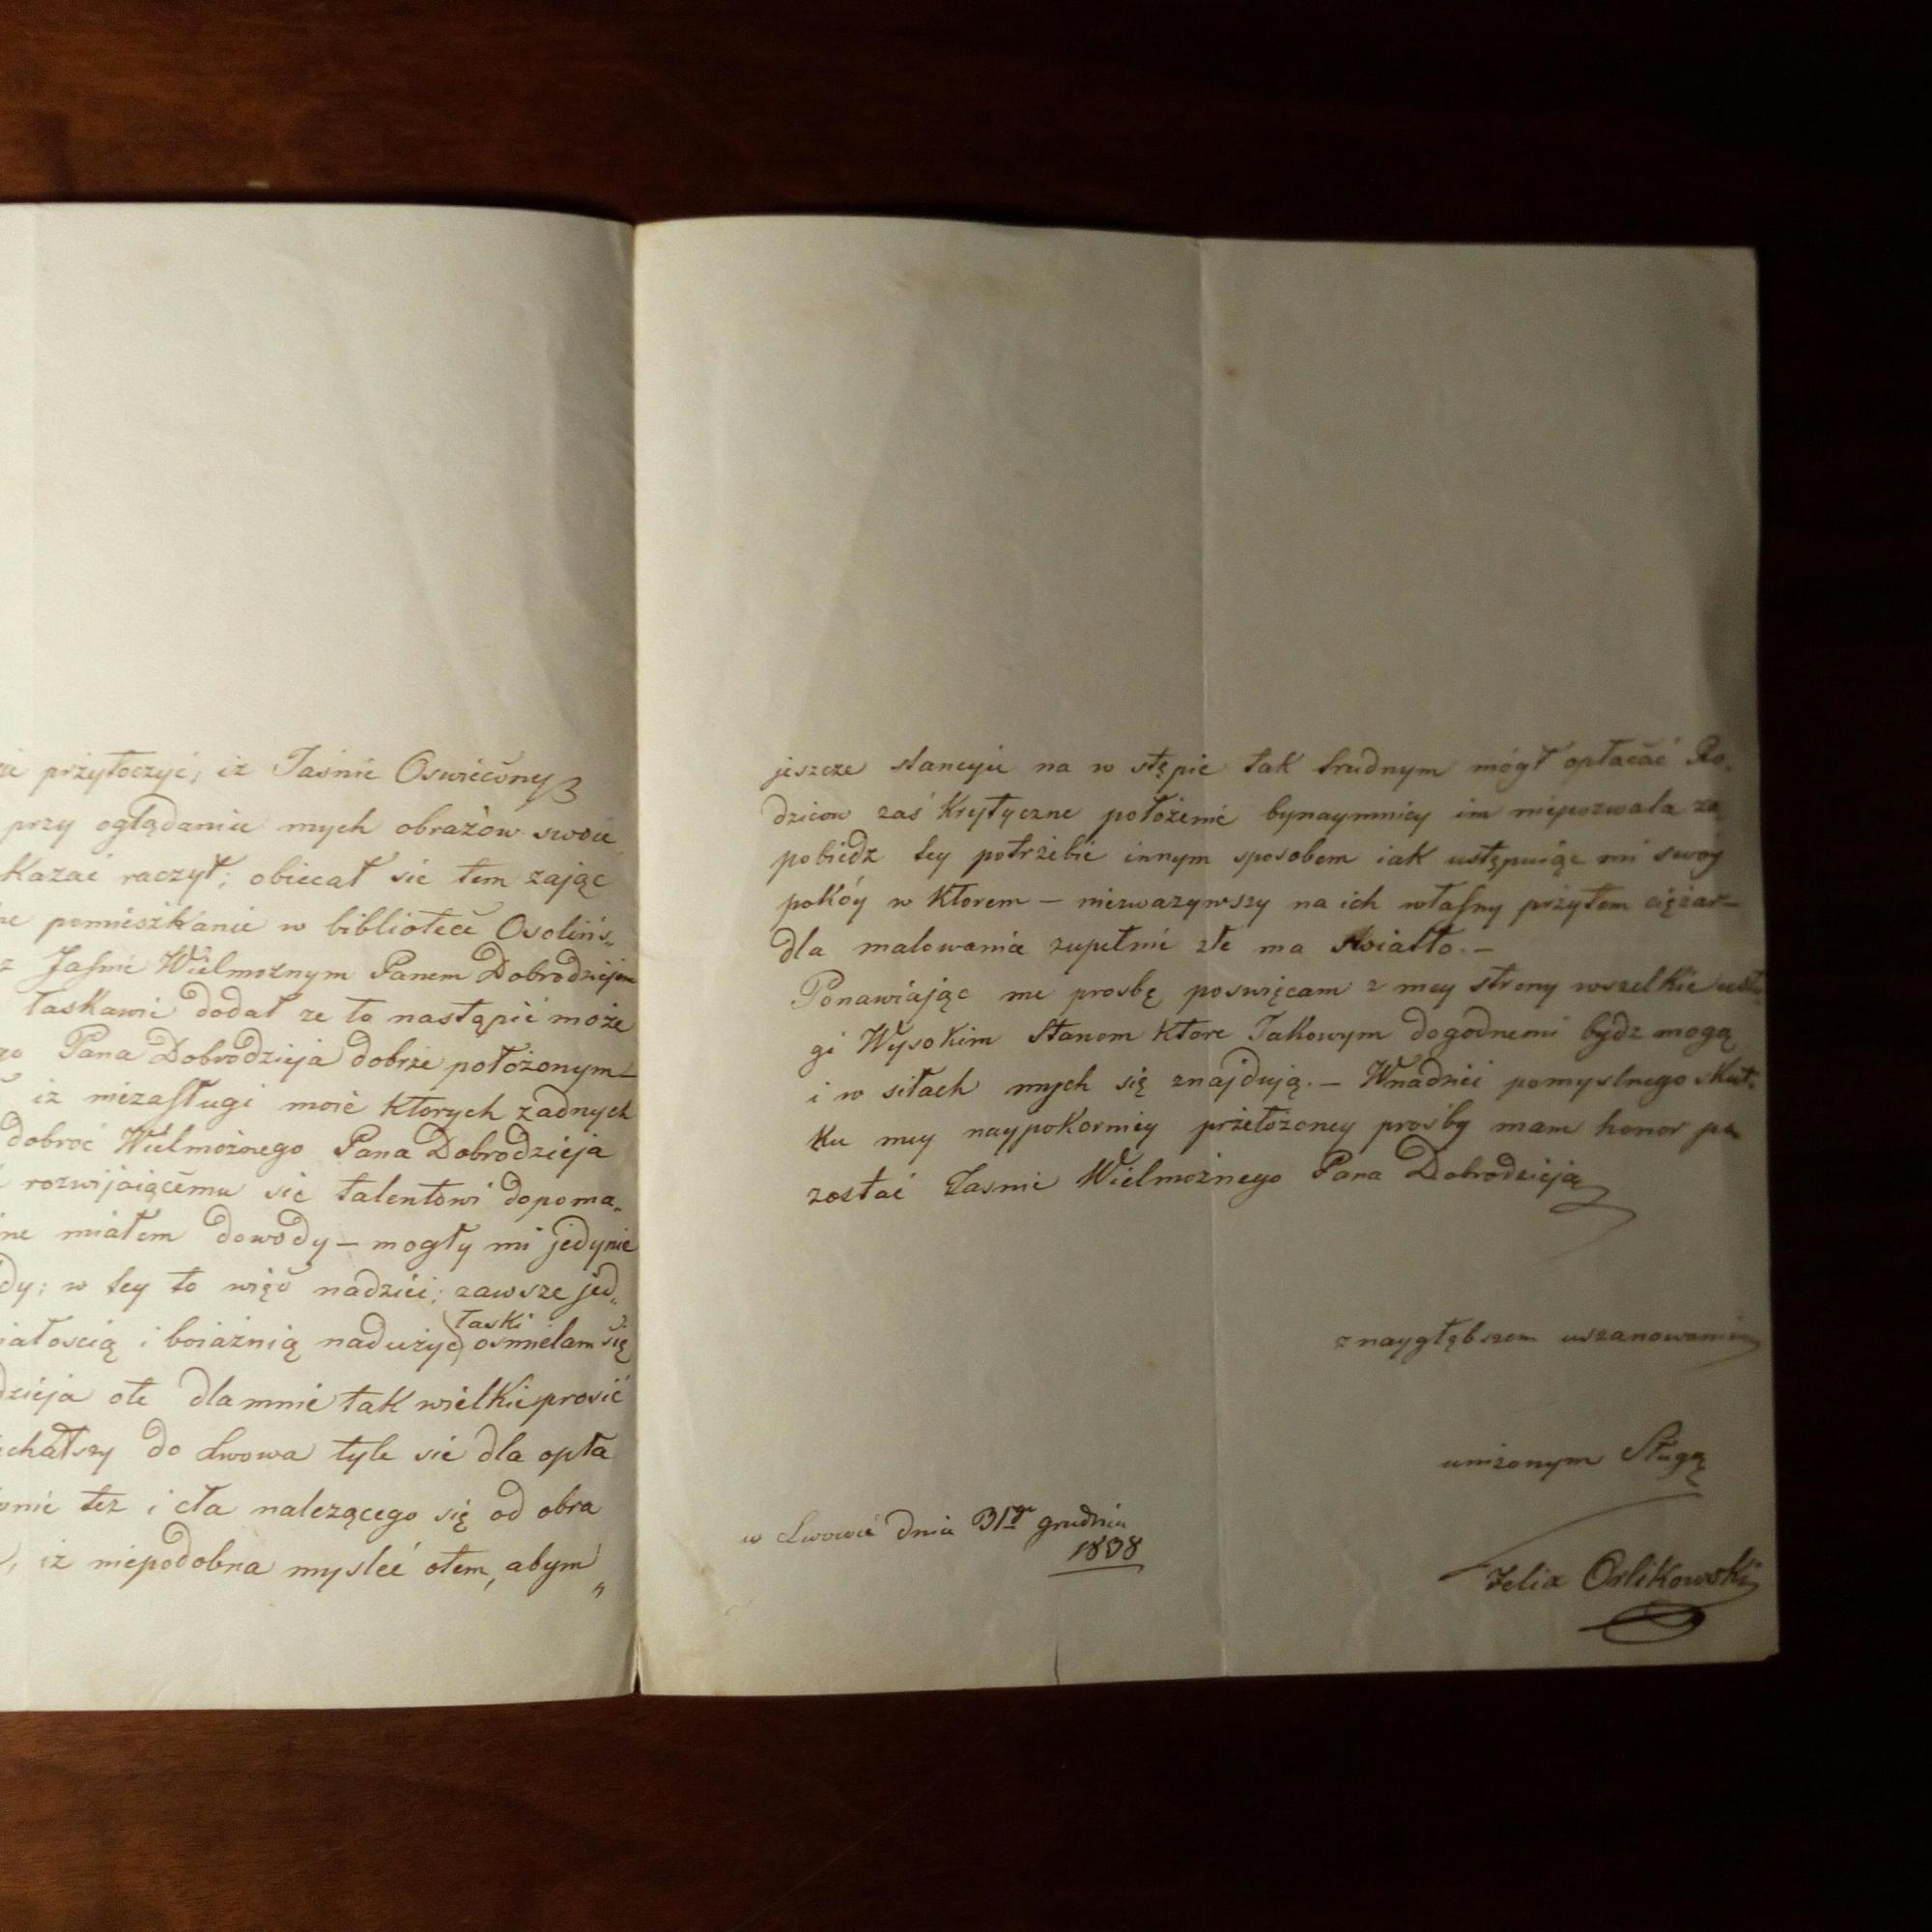 przytoczyć; iż Jaśnie Oswiécony
przy oglądaniu mych obrazów swoie
Kazać raczył; obiecał sie tem zając
pomieszkanie w bibliotece Osolińs„
z Jaśnie Wielmożnym Panem Dobrodziejem
łaskawie dodał ze to nastąpić może
Pana Dobrodzieja dobrze położonym—
iż niezasługi moie Ktorych zadnych
dobroć Wielmożnego Pana Dobrodzieja
rozwijaiącemu sie talentowi dopoma„
miałem dowody — mogły mi jedynie
w tey to więc nadziei; zawsze jed„
łaski
i boiaźnią nadużyć osmielam się
ote dlamnie tak wielkie prosić
do Lwowa tyle sie dla opła
tez i cła nalezącego się od obra
iż niepodobna mysleć otem, abym„
jeszcze stancyie na w stępie tak trudnym mógł opłacać Ro„
dzicow zaś Krytyczne położenie bynaymniey im niepozwala za
pobiedz tey potrzebie innym sposobem iak ustępuiąc mi swoy
pokóy w Ktorem — niezwazywszy na ich własny przytem ciężar—
dla malowania zupełnie złe ma Swiatło.—
Ponawiając me prosbę poswięcam z mey strony wszelkie usłu„
gi Wysokim Stanom Ktore Takowym dogodnemi bydz mogą
i w siłach mych się znajdują.— Wnadziei pomyslnego skut„
ku mey naypokorniey przełożoney prośby mam honor po
zostać Jasnie Wielmożnego Pana Dobrodzieja
z naygłębszem uszanowaniem
unizonym Sługą
w Lwowie dnia 31go grudnia
1838
Felix Orlikowski